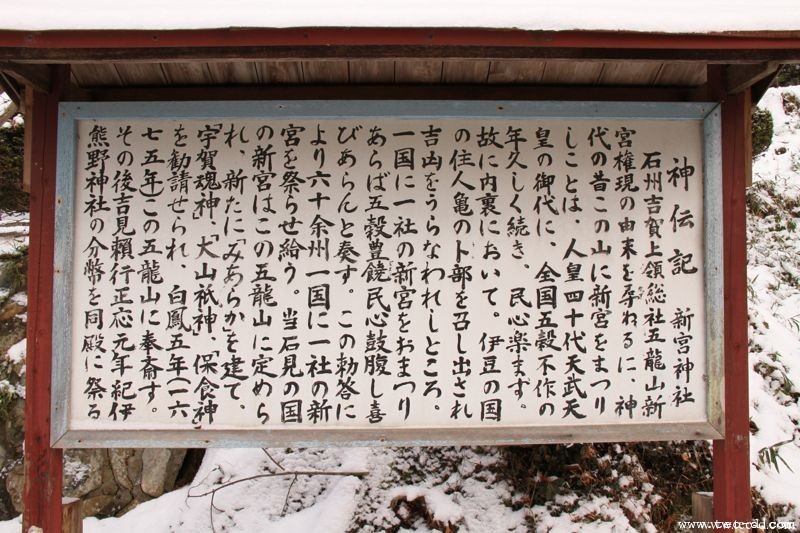 神伝記　新宮神社
石州吉賀上領総社五龍山新
宮権現の由来を尋ねるに、神
代の昔この山に新宮をまつり
しことは、人皇四十代天武天
皇の御代に、全国五穀不作の
年久しく続き、民心楽まず。
故に内裏において。伊豆の国
の住人亀の卜部を召し出され
吉凶をうらなわれしところ。
一国に一社の新宮をおまつり
あらば五穀豊饒民心鼓腹し喜
びあらんと奏す。この勅答に
より六十余州一国に一社の新
宮を祭らせ給う。当石見の国
の新宮はこの五龍山に定めら
れ、新たに「みあらか」を建て、
「宇賀魂神」、「大山祇神」、「保食神」
を勧請せられ、白鳳五年（一六
七五年）この五龍山に奉斎す。
その後吉見頼行正応元年紀伊
熊野神社の分幣を同殿に祭る